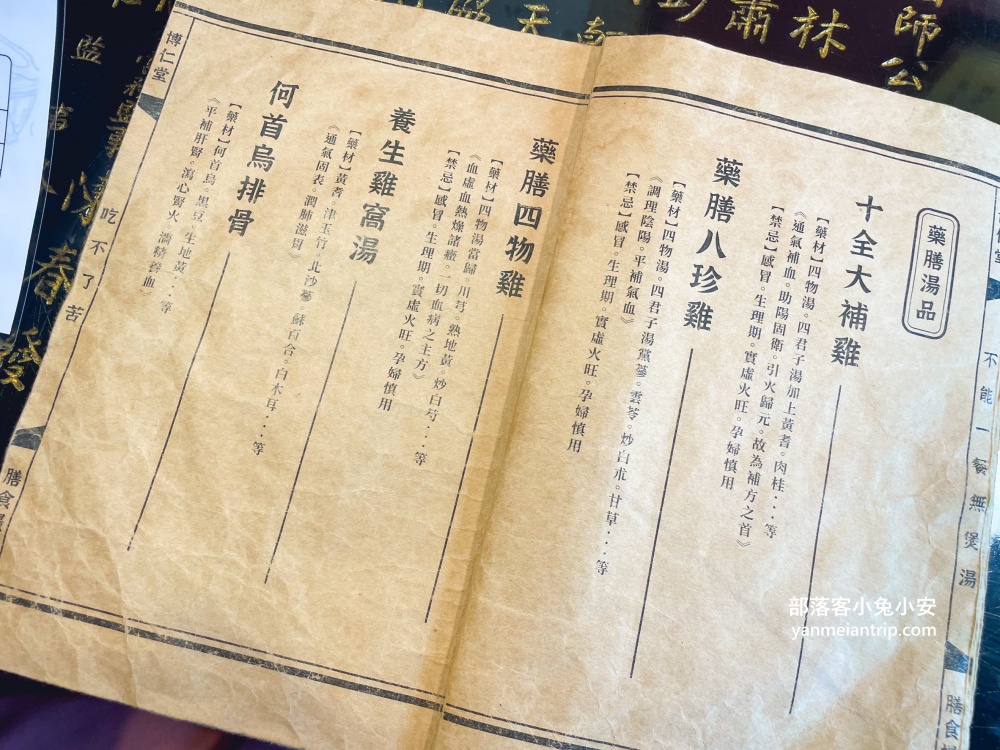 藥膳湯品
十全大補雞
【藥材】四物湯。四君子湯加上黃耆。肉桂...等
《通氣補血。助陽固衛。引火歸元。故為補方之首》
【禁忌】感冒。生理期。實虛火旺。孕婦慎用
藥膳八珍雞
【藥材】四物湯。四君子湯黨蔘。雲苓。炒白朮。甘草...等
《調理陰陽。平補氣血》
【禁忌】感冒。生理期。實虛火旺。孕婦慎用
藥膳四物雞
【藥材】四物湯當歸。川芎。熟地黃。炒白芍...等
《血虛血熱燥諸癥。一切血病之主方》
【禁忌】感冒。生理期。實虛火旺。孕婦慎用
養生雞窩湯
【藥材】黃耆。津玉竹。北沙蔘。蘇百合。白木耳...等
《通氣固表。潤肺滋胃》
何首烏排骨
【藥材】何首烏。黑豆。生地黃...等
《平補肝腎。瀉心腎火。濡精養血》
博仁堂
吃不了苦
膳食
不能一餐無煲湯
膳食
師公
林
蕭
天
監
春
部落客小兔小安
yanmeiantrip.com